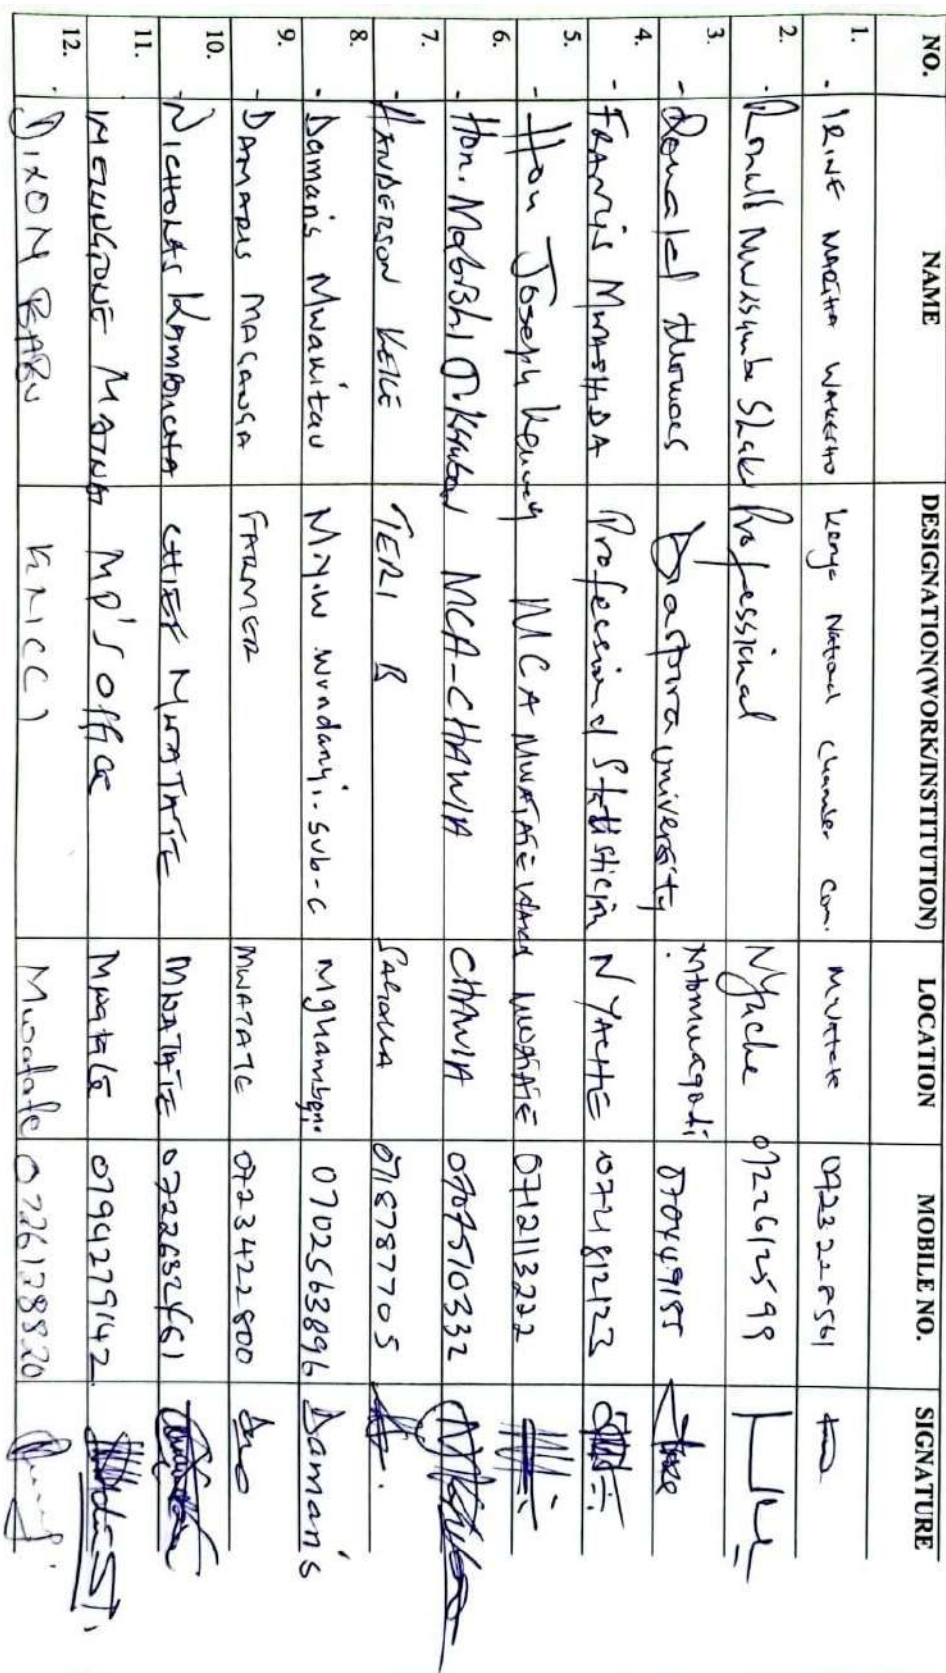 NO. NAME DESIGNATION(WORK/INSTITUTION) LOCATION MOBILE NO. SIGNATURE
1. IRINE MARTHA WAKESHO Kenya National Chamber Com. Mwatate 0723228561
2. Ronald Mwasumbe Shake Professional Nyache 0722612599
3. Ronald Thomas Diaspora university Mtomwagodi 0704491855
4. FRANCIS MWASHIDA Professional Statistician NYACHE 0721812123
5. Hon Joseph MCA MWATATE WARD MWATATE 0712113222
6. Hon. MCA-CHAWIA CHAWIA 0707510332
7. HANDERSON KEKE TERI B SAGALLA 0718787705
8. Damaris Mwakitau Mryw wundanyi-sub-c Mghambonyi 0702563896 Damaris
9. DAMARIS MAGANGA FARMER MWATATE 0723422800
10. NICHOLAS KAMBUCHA CHIEF MWATATE MWATATE 0722632461
11. MELLINGTONE MP'S OFFICE Mwatate 0794279142
12. DIXON BABU KNCCI Mwatate 0726128820